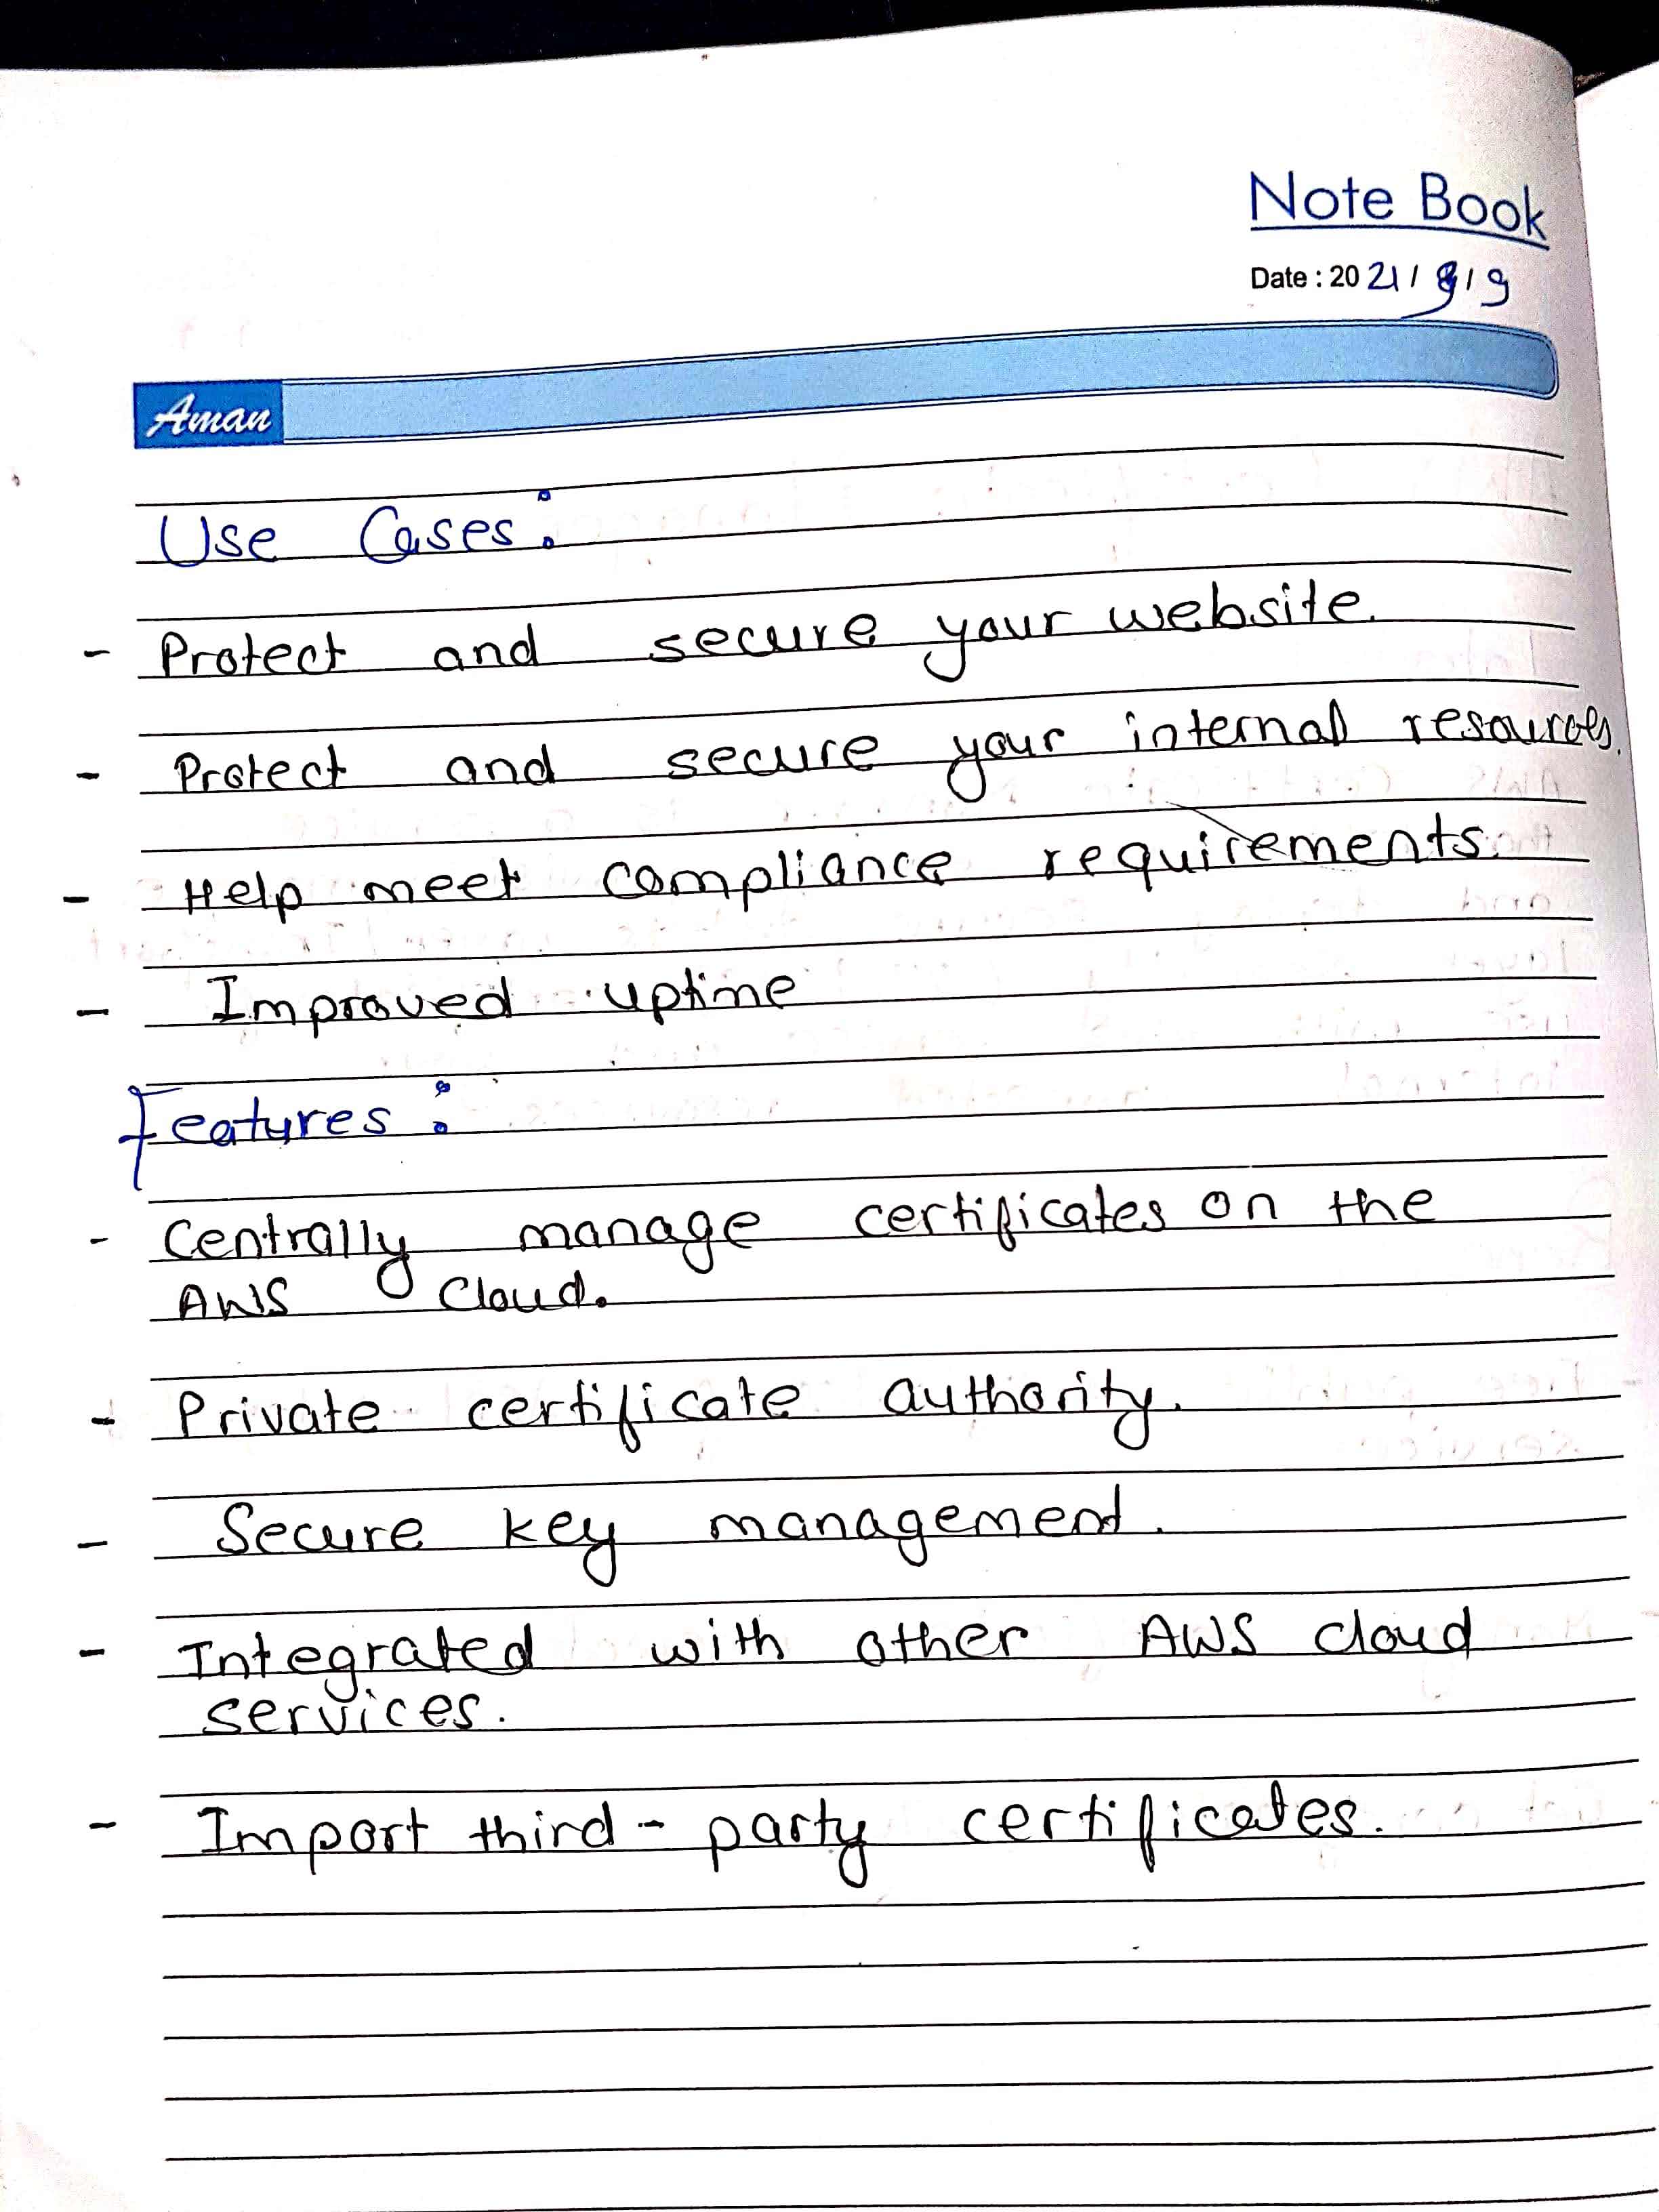 Note Book
Date : 20 21 / 9 / 9
Aman
Use Cases:
- Protect and secure your website.
- Protect and secure your internal resources.
- Help meet compliance requirements.
- Improved uptime
Features:
- Centrally manage certificates on the
AWS Cloud.
- Private certificate authority.
- Secure key management.
- Integrated with other AWS cloud
services.
- Import third-party certificates.